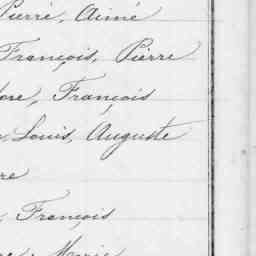 Pierre, Aimé
François, Pierre
François
Louis, Auguste
re
François
Marie